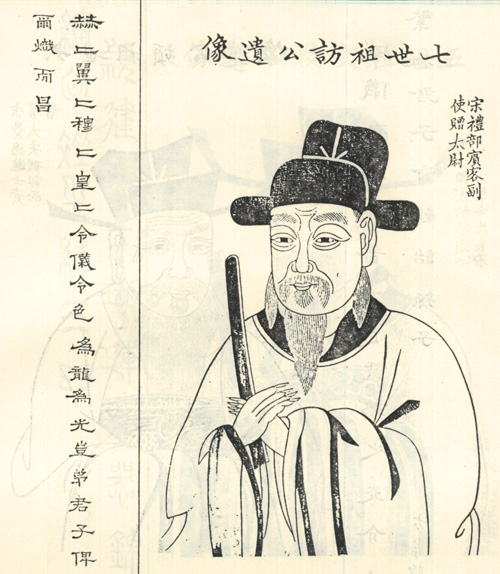 七世祖訪公遺像
宋禮部賓客副
使贈太尉
赫〻翼〻穆〻皇〻令儀令色為龍為光豈弟君子俾
爾熾而昌